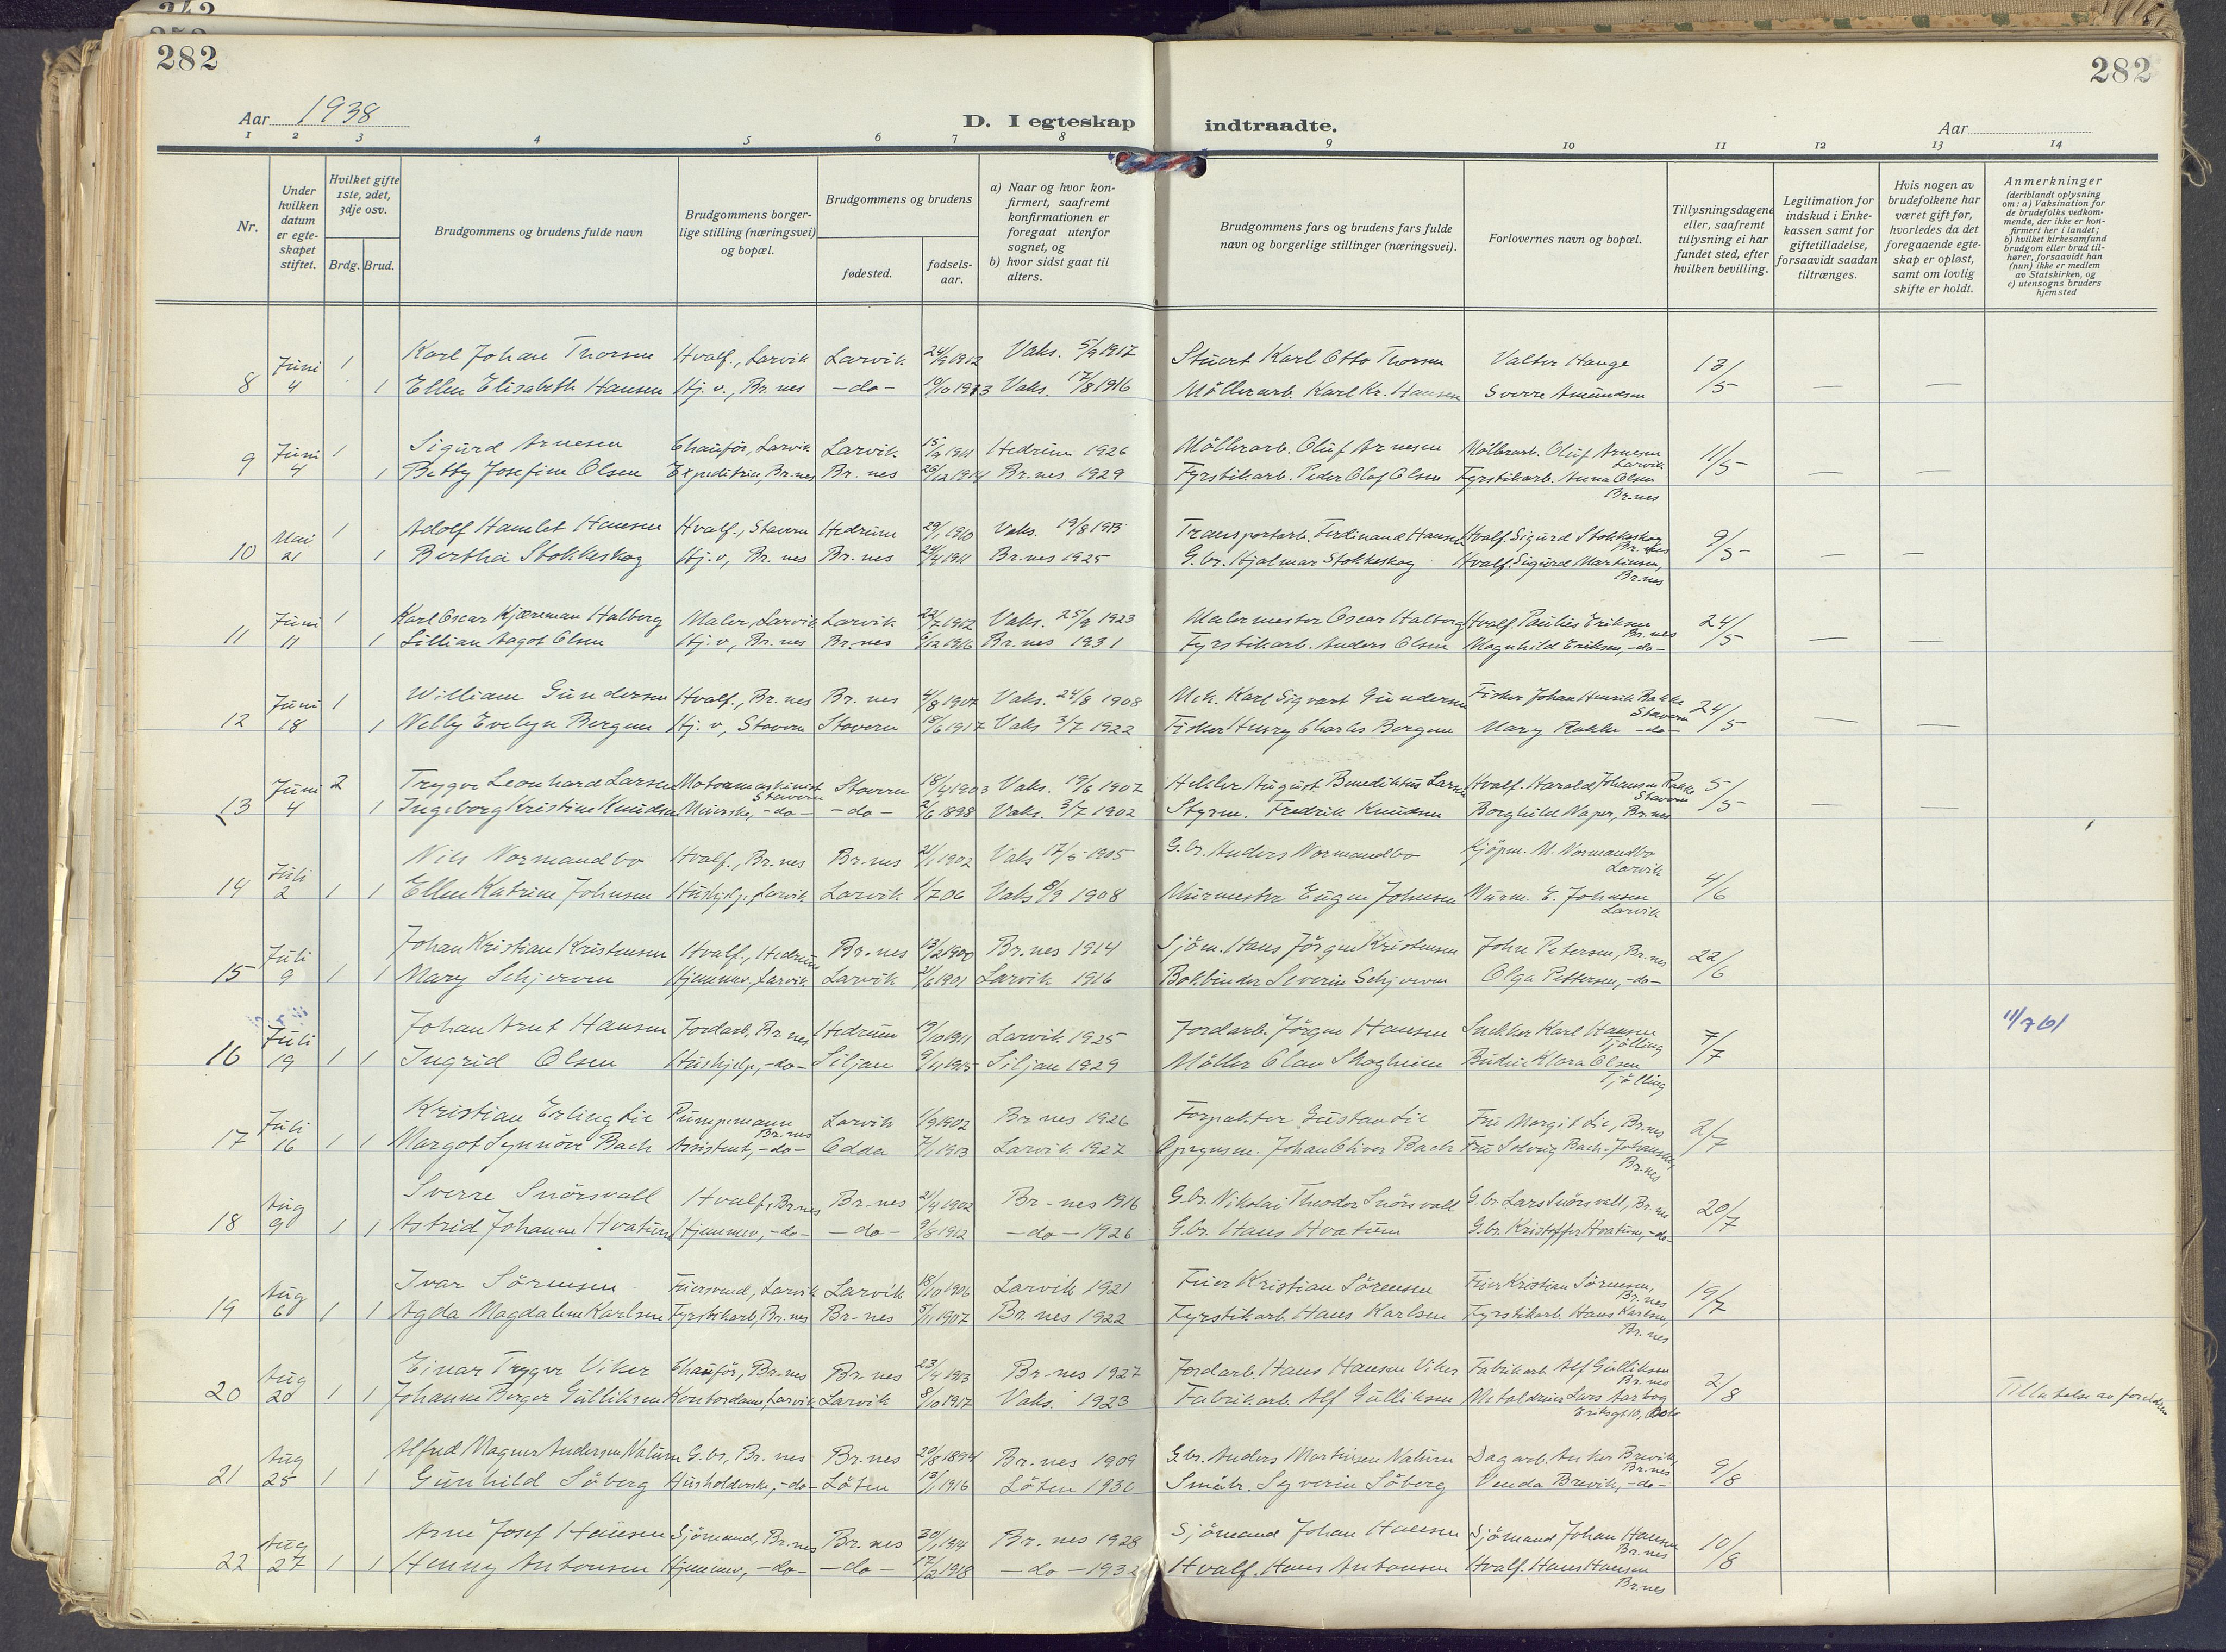 282
282
Aar 1938
D. I egteskap indtraadte.
Aar
1 2 3 4 5 6 7 8 9 10 11 12 13 14
Nr.
Under hvilken datum er egteskapet stiftet.
Hvilket gifte 1ste, 2det, 3dje osv.
Brdg. Brud.
Brudgommens og brudens fulde navn
Brudgommens borgerlige stilling (næringsvei) og bopæl.
Brudgommens og brudens
fødested.
fødselsaar.
a) Naar og hvor konfirmert, saafremt konfirmationen er foregaat utenfor sognet, og
b) hvor sidst gaat til alters.
Brudgommens fars og brudens fars fulde navn og borgerlige stillinger (næringsvei).
Forlovernes navn og bopæl.
Tillysningsdagene eller, saafremt tillysning ei har fundet sted, efter hvilken bevilling.
Legitimation for indskud i Enkekassen samt for giftetilladelse, forsaavidt saadan tiltrænges.
Hvis nogen av brudefolkene har været gift før, hvorledes da det foregaaende egteskap er opløst, samt om lovlig skifte er holdt.
Anmerkninger
(deriblandt oplysning om: a) Vaksination for de brudefolks vedkommende, der ikke er konfirmert her i landet;
b) hvilket kirkesamfund brudgom eller brud tilhører, forsaavidt han (hun) ikke er medlem av Statskirken, og
c) utensogns bruders hjemsted
Juni 1 Karl Johan Thorsen Hvalf., Larvik Larvik 24/9 1912 Vaks. 5/9 1917 Stuert Karl Otto Thorsen Valter Hauge 13/5
8 4 1 Ellen Elisabeth Hansen Hj. v., Br. nes -do- 19/10 1913 Vaks. 17/8 1916 Möllerarb. Karl Kr. Hansen Sverre Amundsen — —
Juni 1 Sigurd Arnesen Chauför, Larvik Larvik 1911 Hedrum 1926 Möllerarb. Oluf Arnesen Möllerarb. Oluf Arnesen Larvik 11/5
9 4 1 Betty Josefine Olsen Expeditrice, Br. nes Br. nes 26/12 1914 Br. nes 1929 Fyrstikarb. Peder Olaf Olsen Fyrstikarb. Anna Olsen Br. nes — —
Mai 1 Adolf Hamlet Hansen Hvalf., Stavern Hedrum 29/1 1910 Vaks. 19/8 1913 Transportarb. Ferdinand Hansen Hvalf. Sigurd Stokkeskog Br. nes 9/5
10 21 1 Bertha Stokkeskog Hj. v, Br. nes Br. nes 24/4 1911 Br. nes 1925 G. br. Hjalmar Stokkeskog Hvalf. Sigurd Martinsen, Br. nes — —
Juni 1 Karl Oscar Kjæreman Halberg Maler, Larvik Larvik 22/7 1912 Vaks. 25/9 1923 Malermester Oscar Halberg Hvalf. Paulius Eriksen Br. nes 24/5
11 11 1 Lillian Aagot Olsen Hj. v, Br. nes Br. nes 6/12 1916 Br. nes 1931 Fyrstikarb. Anders Olsen Magnhild Eriksen, -do- — —
Juni 1 William Gundersen Hvalf., Br. nes Br. nes 4/8 1907 Vaks. 24/8 1908 Mek. Karl Sigvart Gundersen Fisker Johan Henrik Rakke Stavern 24/5
12 18 1 Nelly Evelyn Bergem Hj. v, Stavern Stavern 18/6 1917 Vaks 3/7 1922 Fisker Henry Charles Bergem Mary Rakke -do- — —
Juni 2 Trygve Leonhard Larsen Motormaskinist Stavern Stavern 18/4 1903 Vaks. 19/6 1907 August Benediktus Larsen Hvalf. Harald Johansen Rakke Stavern 5/5
13 4 1 Ingeborg Kristine Knudsen -do- -do- 2/6 1898 Vaks. 3/7 1902 Styrm. Fredrik Knudsen Borghild Naper, Br. nes — —
Juli Nils Normandbo Hvalf., Br. nes Br. nes 21/1 1902 Vaks 17/5 1905 G. br. Anders Normandbo Kjöpm. M. Normandbo Larvik 4/6
14 2 1 1 Ellen Katrine Johnsen Hushjelp, Larvik Larvik 1/7 06 Vaks 8/9 1908 Murmester Eugen Johnsen Murm. E. Johnsen Larvik
Juli Johan Kristian Kristensen Hvalf., Hedrum Br. nes 13/2 1900 Br. nes 1914 Sjöm. Hans Jörgen Kristensen John Petersen, Br. nes 22/6
15 9 1 1 Mary Schjerven Hjemmev. Larvik Larvik 21/6 1901 Larvik 1916 Bokbinder Severin Schjerven Olga Pettersen, -do-
Juli Johan Arnt Hansen Jordarb., Br. nes Hedrum 19/10 1911 Larvik 1925 Jordarb. Jörgen Hansen Snekker Karl Hansen Tjölling 7/7 11/7 61
16 19 1 1 Ingrid Olsen Hushjelp, -do- Siljan 9/11 1915 Siljan 1929 Möller Olav Skogheim Budeie Klara Olsen Tjölling
Juli Kristian Erling Lie Pumpemann Br. nes Larvik 1/9 1902 Br nes 1926 Forpakter Gustav Lie Fru Margit Lie, Br. nes 2/7
17 16 1 1 Margot Synnöve Bach Assistent, -do- Odda 7/1 1913 Larvik 1927 Johan Oliver Bach Fru Solveig Bach-Johansen, Br. nes
Aug Sverre Snörsvall Hvalf., Br. nes Br. nes 21/4 1902 Br-nes 1916 G. br. Nikolai Theodor Snörsvall G. br. Lars Snörsvall, Br. nes 20/7
18 9 1 1 Astrid Johanne Hvatum Hjemmev, -do- -do- 9/8 1912 -do- 1926 G. br. Hans Hvatum G. br. Kristoffer Hvatum, -do-
Aug Ivar Sörensen Feiersvend, Larvik Larvik 18/10 1906 Larvik 1921 Feier Kristian Sörensen Feier Kristian Sörensen, Br. nes 19/7
19 6 1 1 Agda Magdalene Karlsen Fyrstikarb, Br. nes Br. nes 5/1 1907 Br. nes 1922 Fyrstikarb. Hans Karlsen Fyrstikarb. Hans Karlsen, Br. nes
Aug Einar Trygve Viker Chauför, Br. nes Br. nes 23/4 1913 Br. nes 1927 Jordarb. Hans Hansen Viker Fabrikarb. Alf Gulliksen Br. nes 2/8
20 20 1 1 Johanne Berger Gulliksen Kontordame, Larvik Larvik 8/10 1917 Vaks. 1923 Fabrikarb. Alf Gulliksen Metaldreier Lars Aarbog Eriksgt 10, Oslo Tillatelse av foreldre
Aug Alfred Magnus Andersen Nalum G. br, Br. nes Br. nes 20/8 1894 Br. nes 1909 G. br. Anders Martinsen Nalum Dagarb. Anker Brevik, Br. nes 9/8
21 25 1 1 Gunhild Söberg Husholderske, -do- Löten 13/1 1916 Löten 1930 Småbr. Severin Söberg Venda Brevik, -do-
Aug Arne Josef Hansen Sjömand, Br. nes Br. nes 30/1 1914 Br. nes 1928 Sjömand Johan Hansen Sjömand Johan Hansen Br. nes 10/8
22 27 1 1 Henny Antonsen Hjemmev, -do- -do- 17/2 1918 -do- 1932 Hvalf. Hans Antonsen Hvalf. Hans Hansen Br. nes